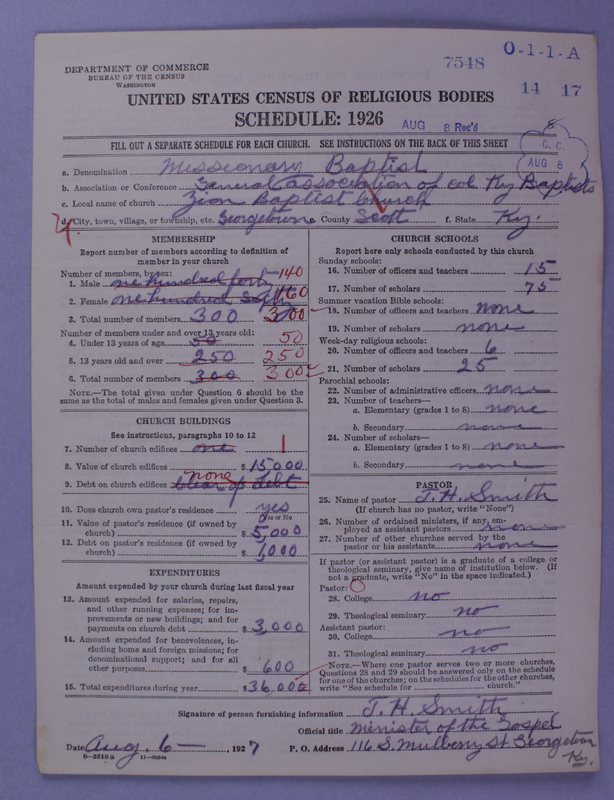 7548
O-1-1-A
14 17
DEPARTMENT OF COMMERCE
BUREAU OF THE CENSUS
WASHINGTON
UNITED STATES CENSUS OF RELIGIOUS BODIES
SCHEDULE: 1926
AUG 8 Rec'd
8
C. C.
AUG 8
FILL OUT A SEPARATE SCHEDULE FOR EACH CHURCH. SEE INSTRUCTIONS ON THE BACK OF THIS SHEET
a. Denomination Missionary Baptist
b. Association or Conference General association of col Ky Baptists
c. Local name of church Zion Baptist Church
d. City, town, village, or township, etc. Georgetown e. County Scott f. State Ky.
MEMBERSHIP
Report number of members according to definition of member in your church
Number of members, by sex:
1. Male one hundred forty 140
2. Female one hundred Sixty 160
3. Total number of members 300 300
Number of members under and over 13 years old:
4. Under 13 years of age 50 50
5. 13 years old and over 250 250
6. Total number of members 300 300
NOTE.—The total given under Question 6 should be the same as the total of males and females given under Question 3.
CHURCH BUILDINGS
See instructions, paragraphs 10 to 12
7. Number of church edifices one 1
8. Value of church edifices $15,000
9. Debt on church edifices none Clear of Debt
10. Does church own pastor's residence yes
Yes or No
11. Value of pastor's residence (if owned by church) $5,000
12. Debt on pastor's residence (if owned by church) $1,000
EXPENDITURES
Amount expended by your church during last fiscal year
13. Amount expended for salaries, repairs, and other running expenses; for improvements or new buildings; and for payments on church debt $3,000
14. Amount expended for benevolences, including home and foreign missions; for denominational support; and for all other purposes $600
15. Total expenditures during year $36,000
CHURCH SCHOOLS
Report here only schools conducted by this church
Sunday schools:
16. Number of officers and teachers 15
17. Number of scholars 75
Summer vacation Bible schools:
18. Number of officers and teachers none
19. Number of scholars none
Week-day religious schools:
20. Number of officers and teachers 6
21. Number of scholars 25
Parochial schools:
22. Number of administrative officers none
23. Number of teachers—
a. Elementary (grades 1 to 8) none
b. Secondary none
24. Number of scholars—
a. Elementary (grades 1 to 8) none
b. Secondary none
PASTOR
25. Name of pastor J. H. Smith
(If church has no pastor, write "None")
26. Number of ordained ministers, if any, employed as assistant pastors none
27. Number of other churches served by the pastor or his assistants none
If pastor (or assistant pastor) is a graduate of a college or theological seminary, give name of institution below. (If not a graduate, write "No" in the space indicated.)
Pastor:
28. College no
29. Theological seminary no
Assistant pastor:
30. College no
31. Theological seminary no
NOTE.—Where one pastor serves two or more churches, Questions 28 and 29 should be answered only on the schedule for one of the churches; on the schedules for the other churches, write "See schedule for church."
Signature of person furnishing information J. H. Smith
Official title Minister of the Gospel
Date Aug. 6 —, 1927 P. O. Address 116 S. Mulberry St. Georgetown Ky.